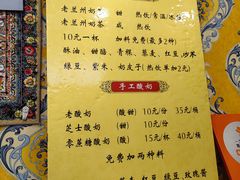 老兰州奶 甜 热饮/常温/冰
老兰州奶茶 咸 热饮
10元一杯 加料免费(最多2种)
酥油、甜醅、青稞、葡萄、红豆、炒米
绿豆、紫米、奶皮子(热饮单加2元)
手工酸奶
老酸奶 (甜) 10元/份 35元/桶
芝士酸奶 (甜) 10元/份
零蔗糖酸奶 (酸) 15元/杯 40元/桶
免费加两种料
红豆 绿豆 玫瑰酱